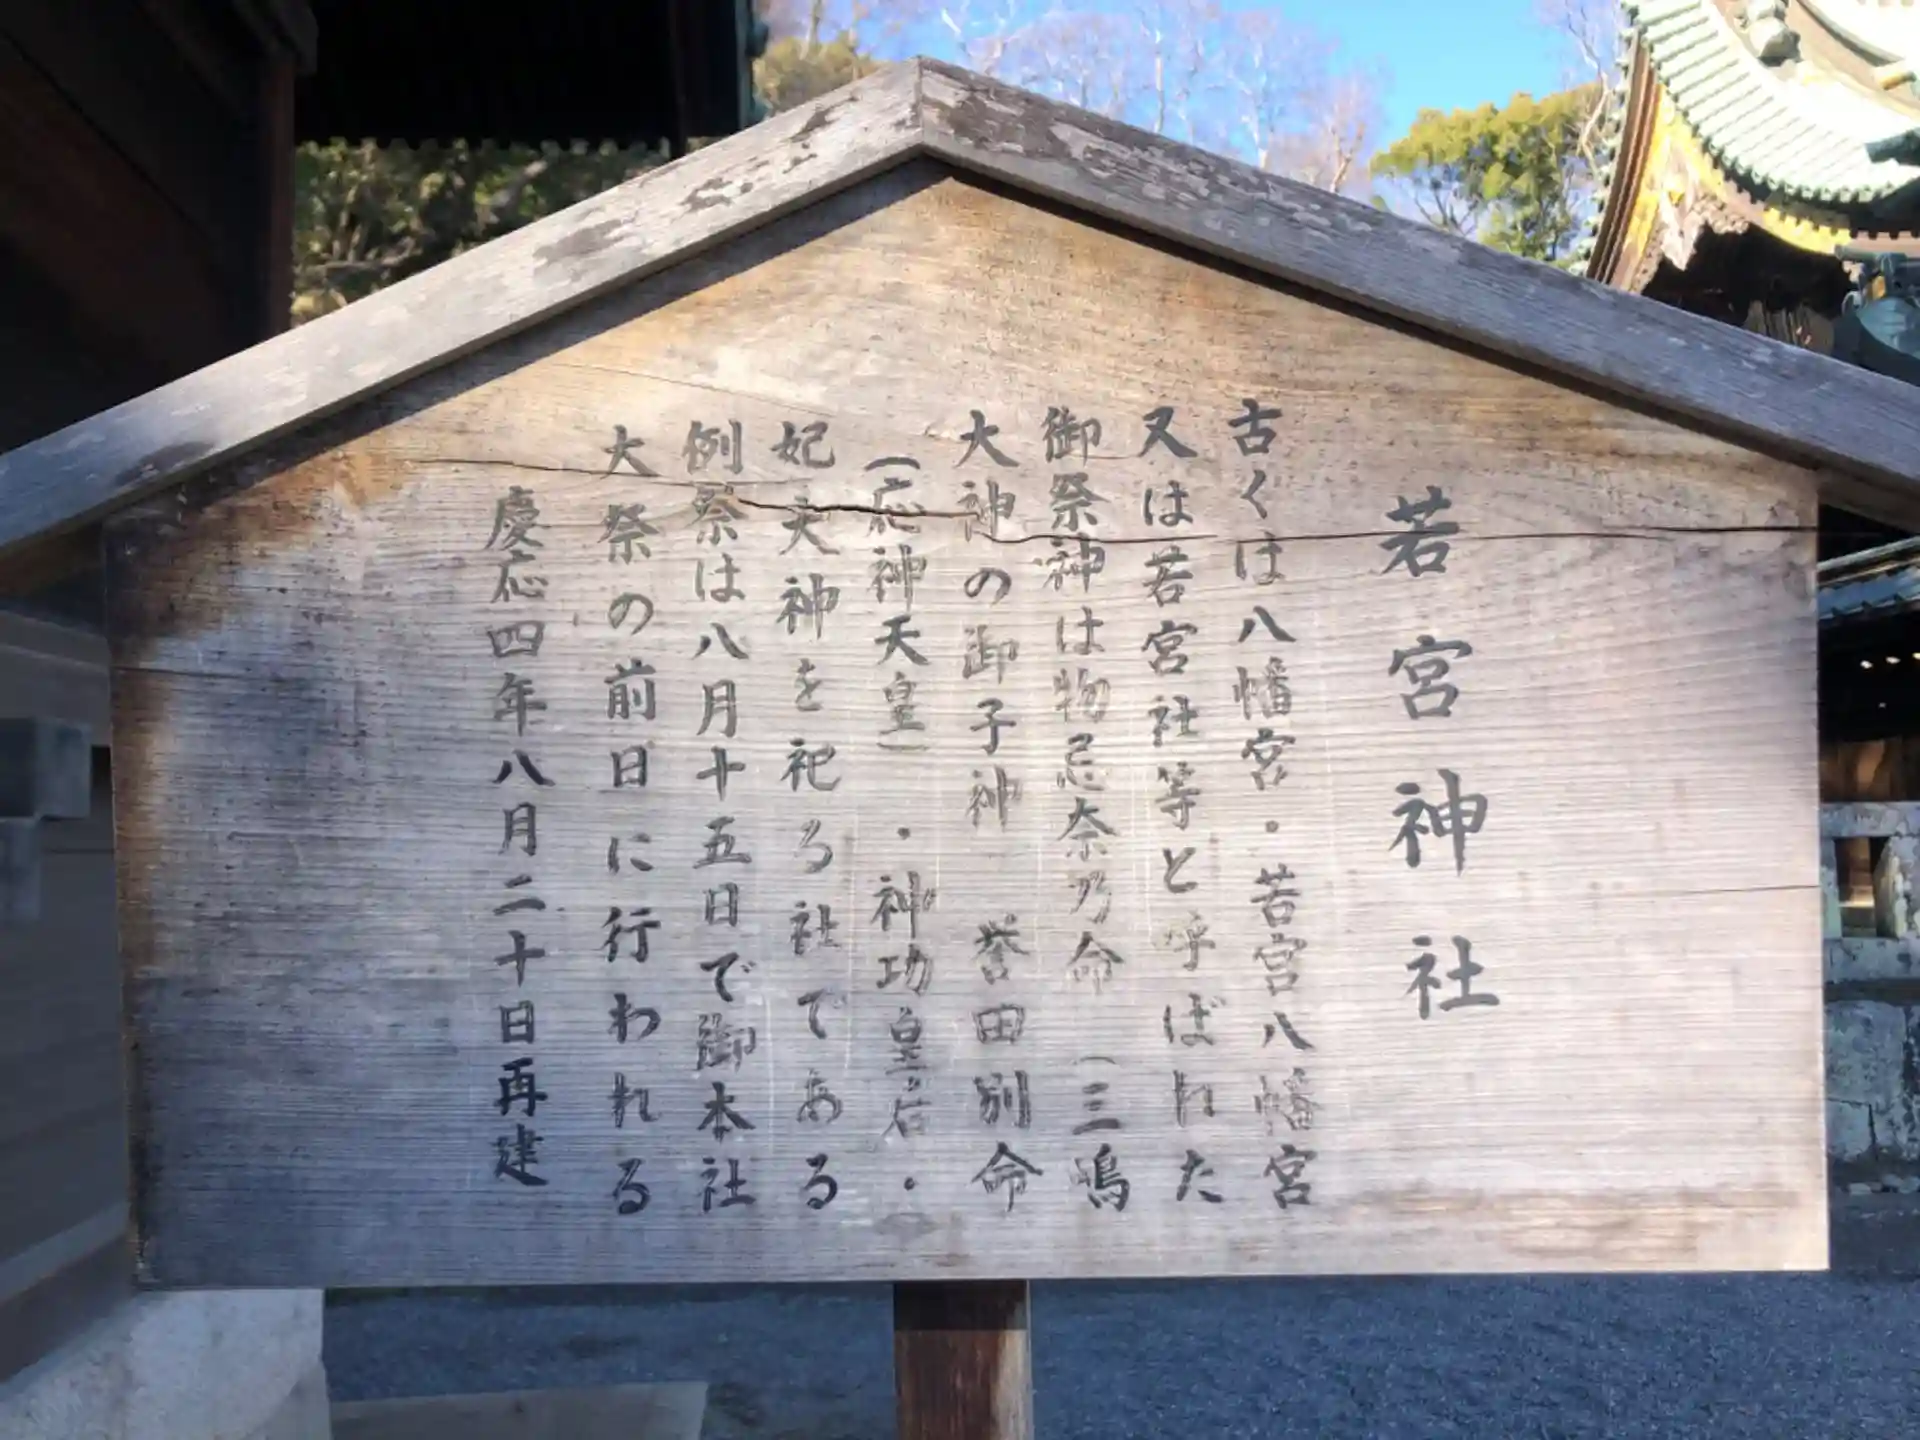 若宮神社
古くは八幡宮・若宮八幡宮
又は若宮社等と呼ばれた
御祭神は物忌奈乃命（三嶋
大神の御子神 誉田別命
（応神天皇）・神功皇后・
妃大神を祀る社である
例祭は八月十五日で御本社
大祭の前日に行われる
慶応四年八月二十日再建